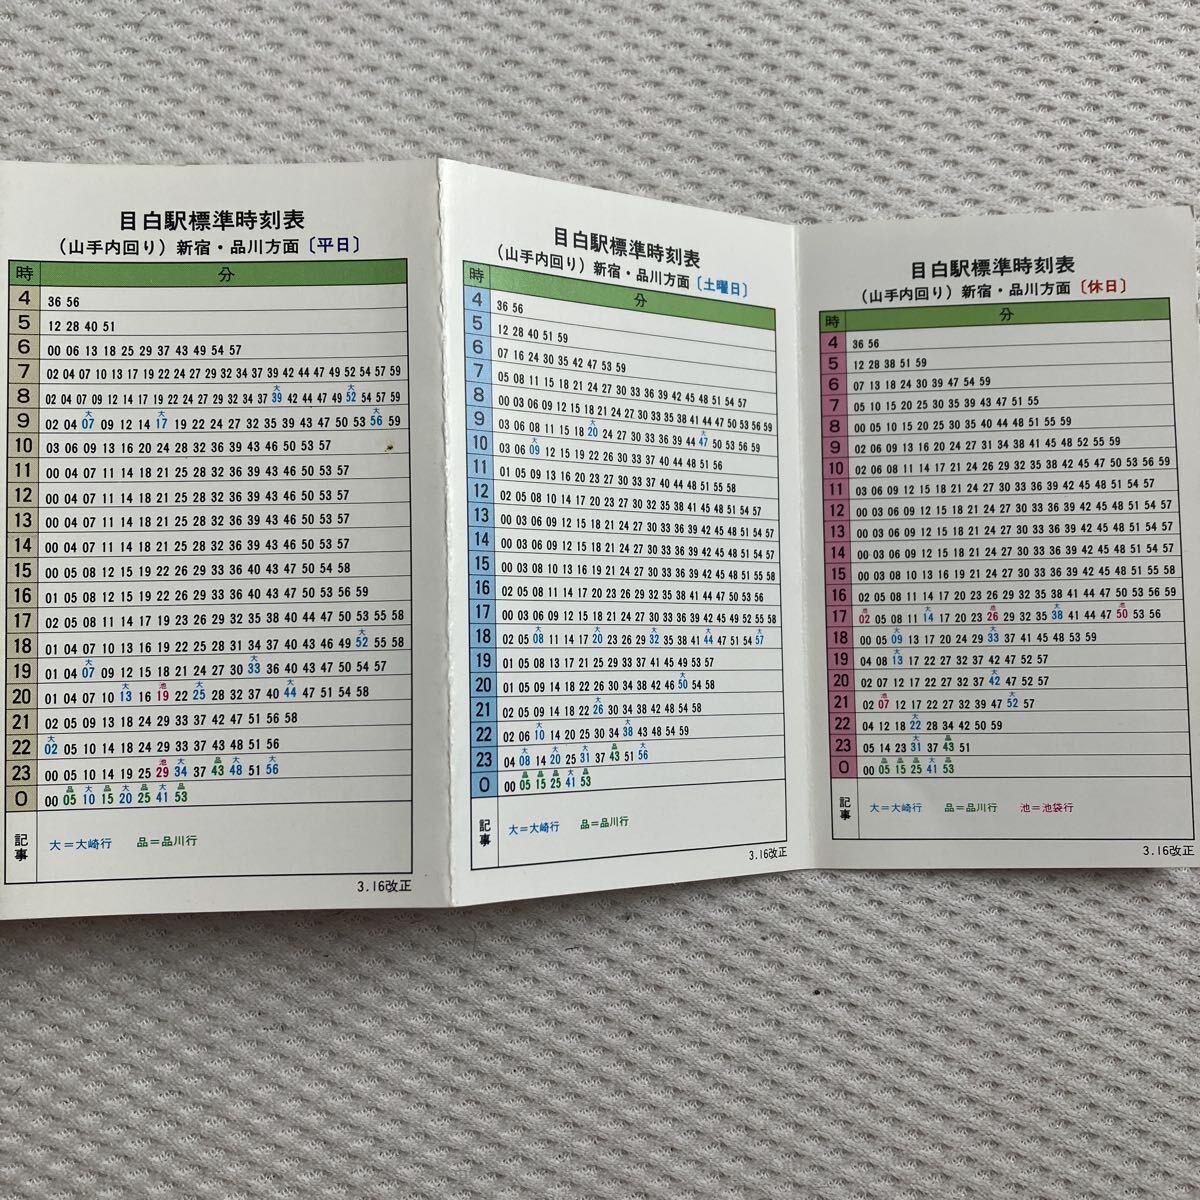 目白駅標準時刻表
(山手内回り) 新宿・品川方面〔平日〕
時 分
4 36 56
5 12 28 40 51
6 00 06 13 18 25 29 37 43 49 54 57
7 02 04 07 10 13 17 19 22 24 27 29 32 34 37 39 42 44 47 49 52 54 57 59
大 大
8 02 04 07 09 12 14 17 19 22 24 27 29 32 34 37 39 42 44 47 49 52 54 57 59
大 大 大
9 02 04 07 09 12 14 17 19 22 24 27 32 35 39 43 47 50 53 56 59
10 03 06 09 13 16 20 24 28 32 36 39 43 46 50 53 57
11 00 04 07 11 14 18 21 25 28 32 36 39 43 46 50 53 57
12 00 04 07 11 14 18 21 25 28 32 36 39 43 46 50 53 57
13 00 04 07 11 14 18 21 25 28 32 36 39 43 46 50 53 57
14 00 04 07 11 14 18 21 25 28 32 36 39 43 46 50 53 57
15 00 05 08 12 15 19 22 26 29 33 36 40 43 47 50 54 58
16 01 05 08 12 15 19 22 26 29 33 36 40 43 47 50 53 56 59
17 02 05 08 11 14 17 19 23 26 29 32 35 38 40 44 47 50 53 55 58
大
18 01 04 07 10 13 16 19 22 25 28 31 34 37 40 43 46 49 52 55 58
大 大
19 01 04 07 09 12 15 18 21 24 27 30 33 36 40 43 47 50 54 57
大 池 大 大
20 01 04 07 10 13 16 19 22 25 28 32 37 40 44 47 51 54 58
21 02 05 09 13 18 24 29 33 37 42 47 51 56 58
大
22 02 05 10 14 18 24 29 33 37 43 48 51 56
池 大 品 大 大
23 00 05 10 14 19 25 29 34 37 43 48 51 56
品 大 品 大 品 大 品
0 00 05 10 15 20 25 41 53
記事 大=大崎行 品=品川行
3.16改正
目白駅標準時刻表
(山手内回り) 新宿・品川方面〔土曜日〕
時 分
4 36 56
5 12 28 40 51 59
6 07 16 24 30 35 42 47 53 59
7 05 08 11 15 18 21 24 27 30 33 36 39 42 45 48 51 54 57
8 00 03 06 09 12 15 18 21 24 27 30 33 35 38 41 44 47 50 53 56 59
大 大
9 03 06 08 11 15 18 20 24 27 30 33 36 39 44 47 50 53 56 59
大
10 03 06 09 12 15 19 22 26 30 33 37 40 44 48 51 56
11 01 05 09 13 16 20 23 27 30 33 37 40 44 48 51 55 58
12 02 05 08 10 14 17 20 23 27 30 32 35 38 41 45 48 51 54 57
13 00 03 06 09 12 15 18 21 24 27 30 33 36 39 42 45 48 51 54 57
14 00 03 06 09 12 15 18 21 24 27 30 33 36 39 42 45 48 51 54 57
15 00 03 08 10 13 16 19 21 24 27 30 33 36 39 42 45 48 51 55 58
16 02 05 08 11 14 17 20 23 26 29 32 35 38 41 44 47 50 53 56
17 00 03 06 09 12 15 18 21 24 27 30 33 36 39 42 45 48 51 54 57
大 大 大 大 大
18 02 05 08 11 14 17 20 23 26 29 32 35 38 41 44 47 51 54 57
19 01 05 08 13 17 21 25 29 33 37 41 45 49 53 57
大
20 01 05 09 14 18 22 26 30 34 38 42 46 50 54 58
大
21 02 05 09 14 18 22 26 30 34 38 42 48 54 58
大 大
22 02 06 10 14 20 25 30 34 38 43 48 54 59
大 大 大 品 大
23 04 08 14 20 25 31 37 43 51 56
品 品 品 大 品
0 00 05 15 25 41 53
記事 大=大崎行 品=品川行
3.16改正
目白駅標準時刻表
(山手内回り) 新宿・品川方面〔休日〕
時 分
4 36 56
5 12 28 38 51 59
6 07 13 18 24 30 39 47 54 59
7 05 10 15 20 25 30 35 39 43 47 51 55
8 00 05 10 15 20 25 30 35 40 44 48 51 55 59
9 02 06 09 13 16 20 24 27 31 34 38 41 45 48 52 55 59
10 02 06 08 11 14 17 21 24 26 29 32 35 38 42 45 47 50 53 56 59
11 03 06 09 12 15 18 21 24 27 30 33 36 39 42 45 48 51 54 57
12 00 03 06 09 12 15 18 21 24 27 30 33 36 39 42 45 48 51 54 57
13 00 03 06 09 12 15 18 21 24 27 30 33 36 39 42 45 48 51 54 57
14 00 03 06 09 12 15 18 21 24 27 30 33 36 39 42 45 48 51 54 57
15 00 03 08 10 13 16 19 21 24 27 30 33 36 39 42 45 48 51 55 58
16 02 05 08 11 14 17 20 23 26 29 32 35 38 41 44 47 50 53 56 59
池 大 池 大 池
17 02 05 08 11 14 17 20 23 26 29 32 35 38 41 44 47 50 53 56
大 大
18 00 05 09 13 17 20 24 29 33 37 41 45 48 53 59
大
19 04 08 13 17 22 27 32 37 42 47 52 57
大
20 02 07 12 17 22 27 32 37 42 47 52 57
池 大
21 02 07 12 17 22 27 34 39 47 52 57
大
22 04 12 18 22 28 34 42 50 59
大 品
23 05 14 23 31 37 43 51
品 品 品 大 品
0 00 05 15 25 41 53
記事 大=大崎行 品=品川行 池=池袋行
3.16改正